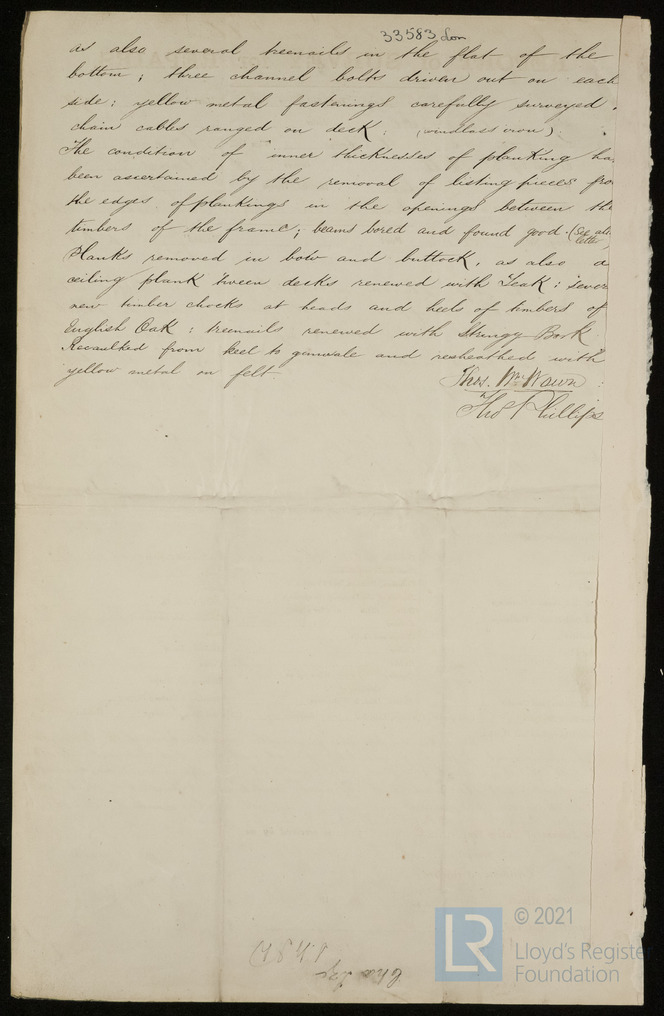 33583 Lon
as also several treenails in the flat of the
bottom ; three channel bolts driven out on each
side ; yellow metal fastenings carefully surveyed .
chain cables ranged on deck ; (windlass own)
The condition of inner thicknesses of planking ha
been ascertained by the removal of listing pieces fro
the edges of plankings in the openings between the
timbers of the frame ; beams bored and found good . (See
letter
Planks removed in bow and buttock , as also a
ceiling plank 'tween decks renewed with Teak ; sever
new timber chocks at heads and heels of timbers of
English Oak : treenails renewed with Stringy Bark
Recaulked from keel to gunwale and resheathed with
yellow metal on felt
Thos. Wm Wawn
Thos Phillips
© 2021
LR
Lloyd's Register
Foundation